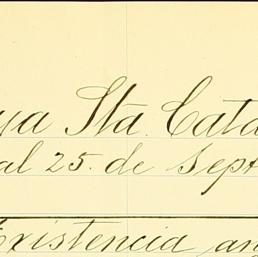 ya Sta. Cata
al 25. de Sept
Existencia an